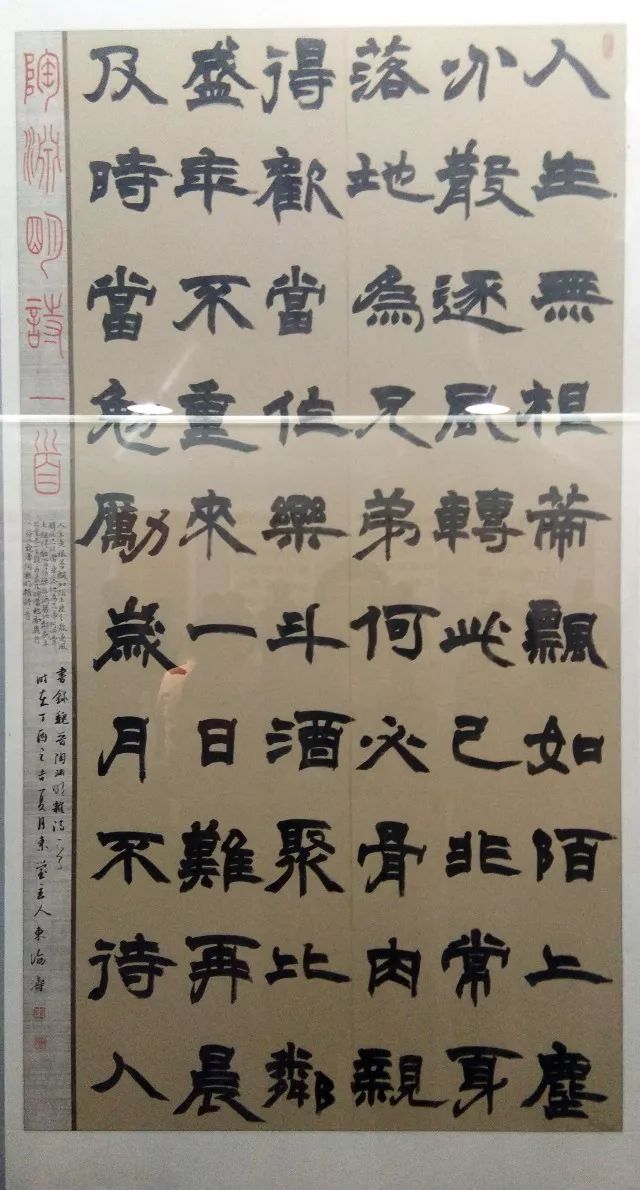 人生無根蒂飄如陌上塵
分散逐風轉此已非常身
落地為兄弟何必骨肉親
得歡當作樂斗酒聚比鄰
盛年不重來一日難再晨
及時當勉勵歲月不待人
陶淵明詩一首
書錄魏晉陶淵明雜詩一首
時在丁酉之吉夏月東
主人東海